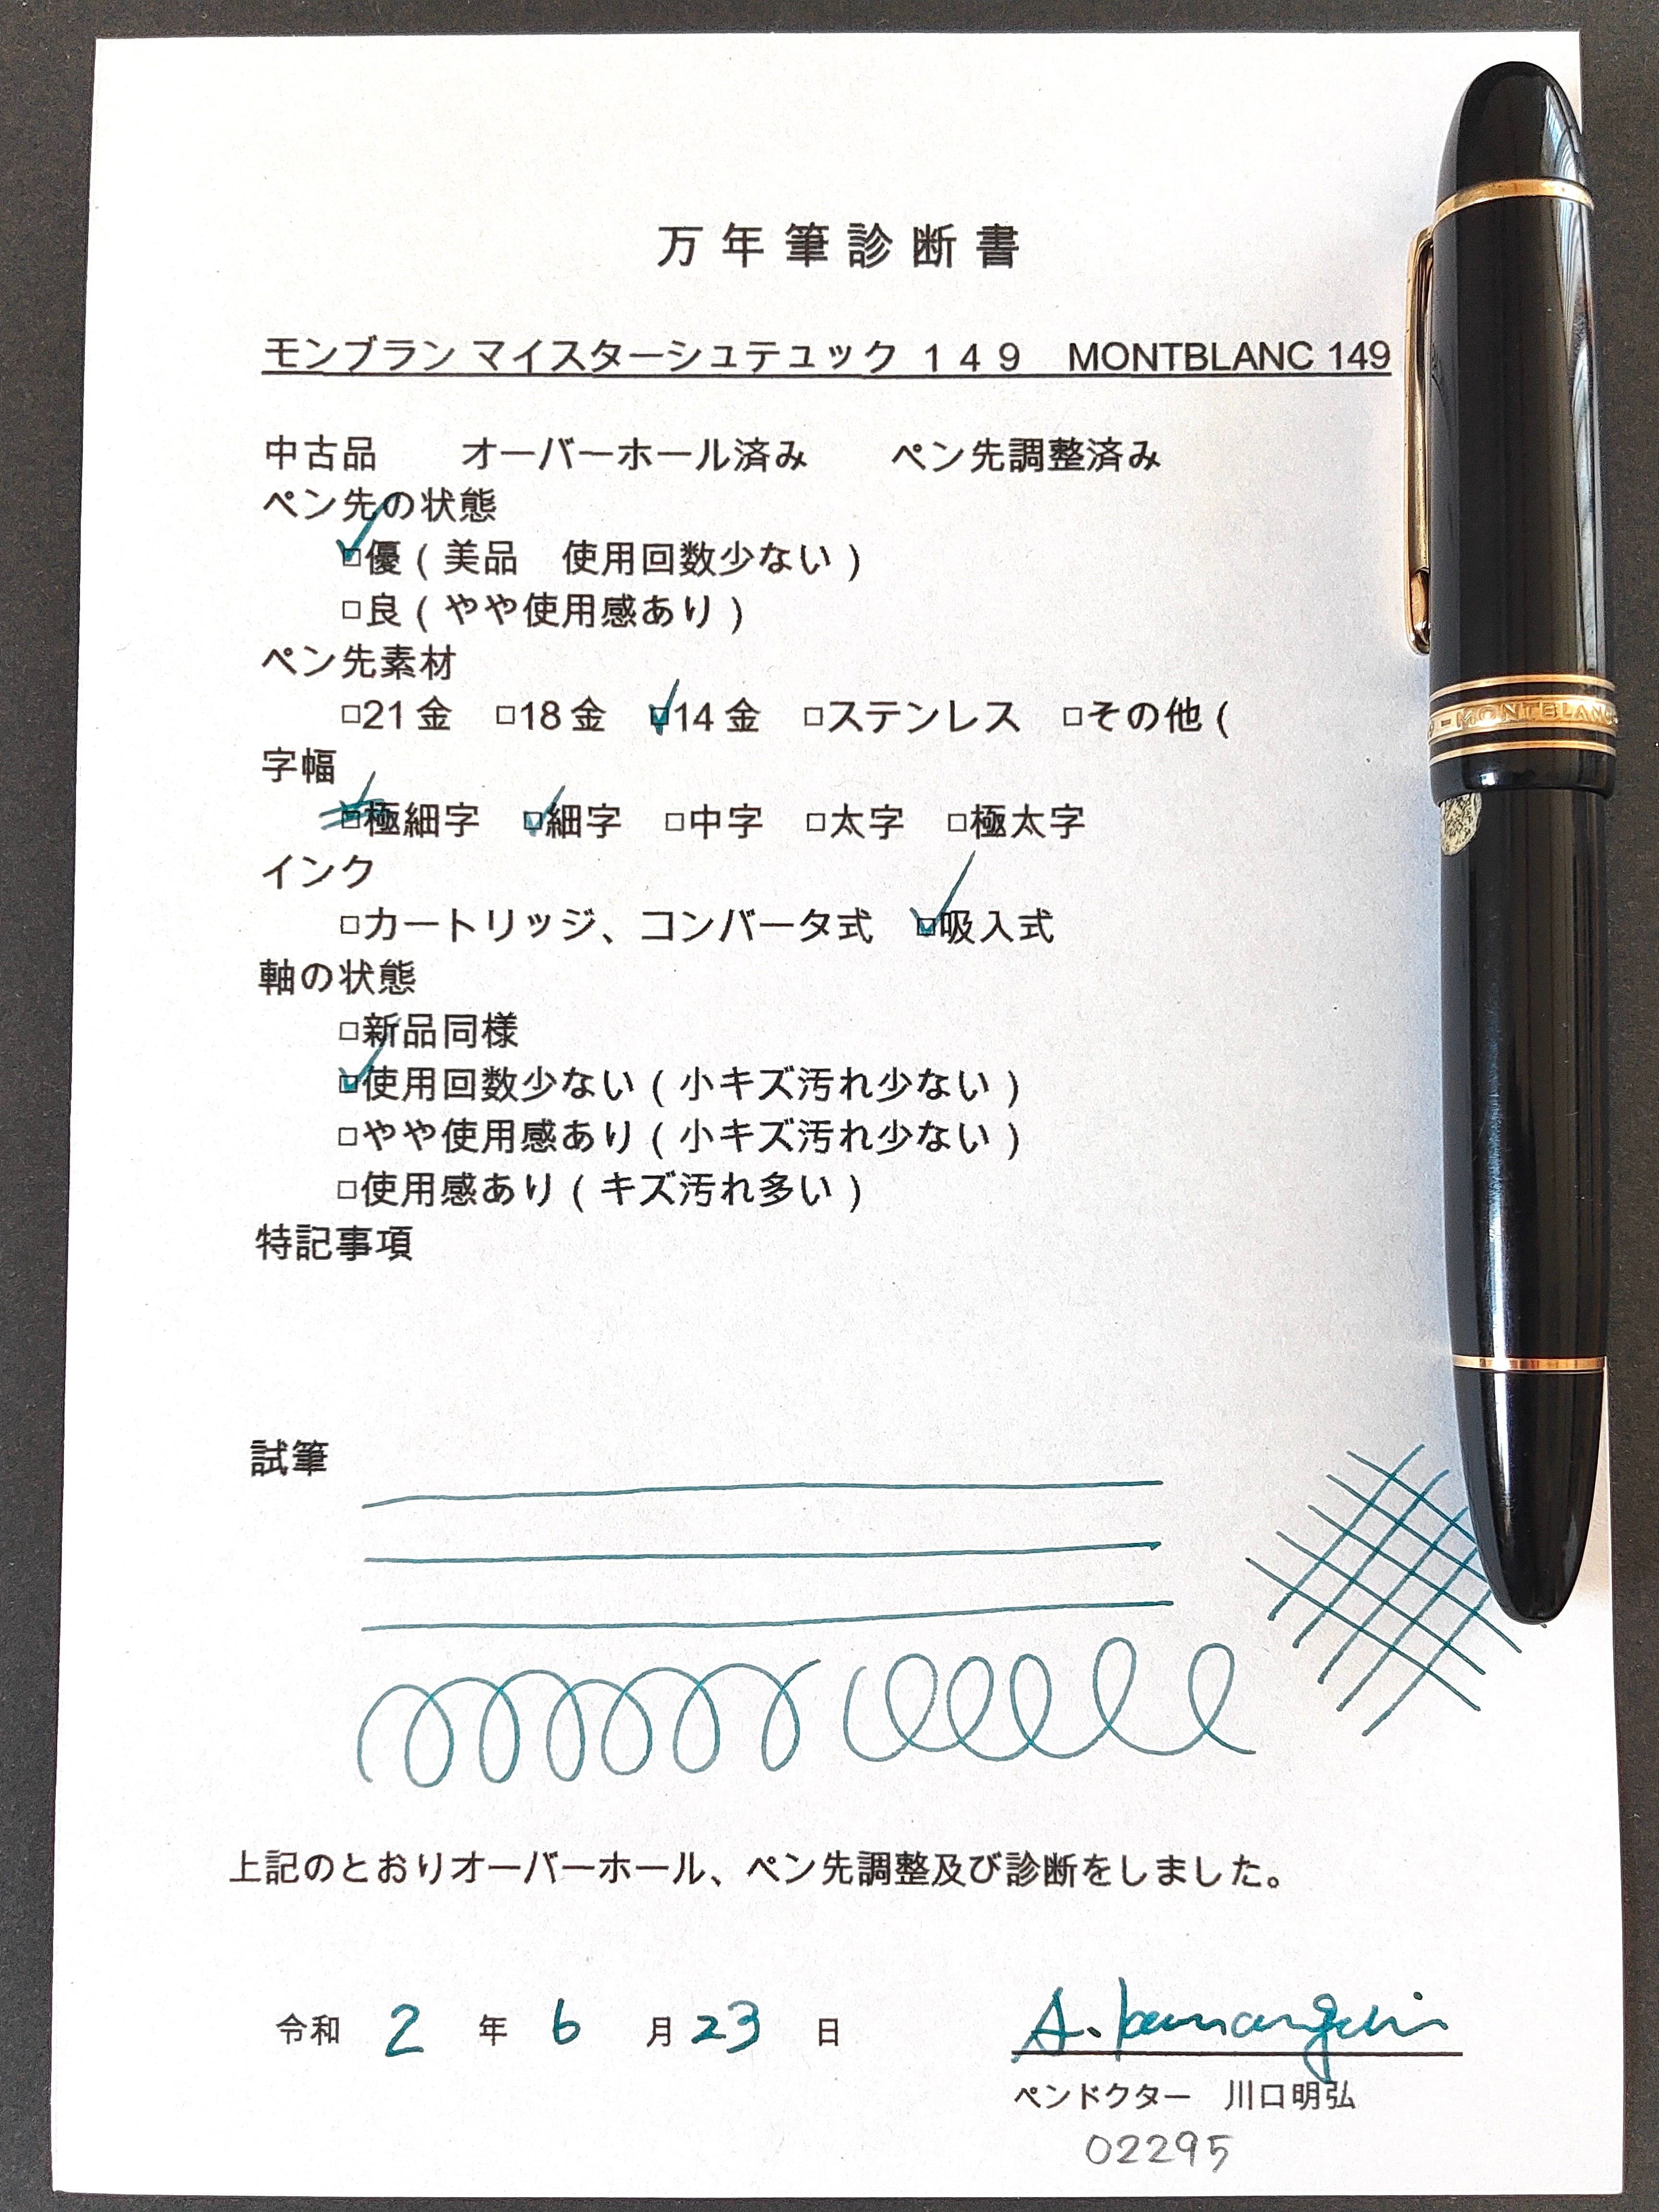 万年筆診断書
モンブラン マイスターシュテュック １４９　MONTBLANC 149
中古品　オーバーホール済み　ペン先調整済み
ペン先の状態
☑優（美品　使用回数少ない）
□良（やや使用感あり）
ペン先素材
□21金　□18金　☑14金　□ステンレス　□その他（
字幅
☑極細字　☑細字　□中字　□太字　□極太字
インク
□カートリッジ、コンバータ式　☑吸入式
軸の状態
□新品同様
☑使用回数少ない（小キズ汚れ少ない）
□やや使用感あり（小キズ汚れ少ない）
□使用感あり（キズ汚れ多い）
特記事項
試筆
上記のとおりオーバーホール、ペン先調整及び診断をしました。
令和 2 年 6 月 23 日
ペンドクター　川口明弘
02295
MONTBLANC